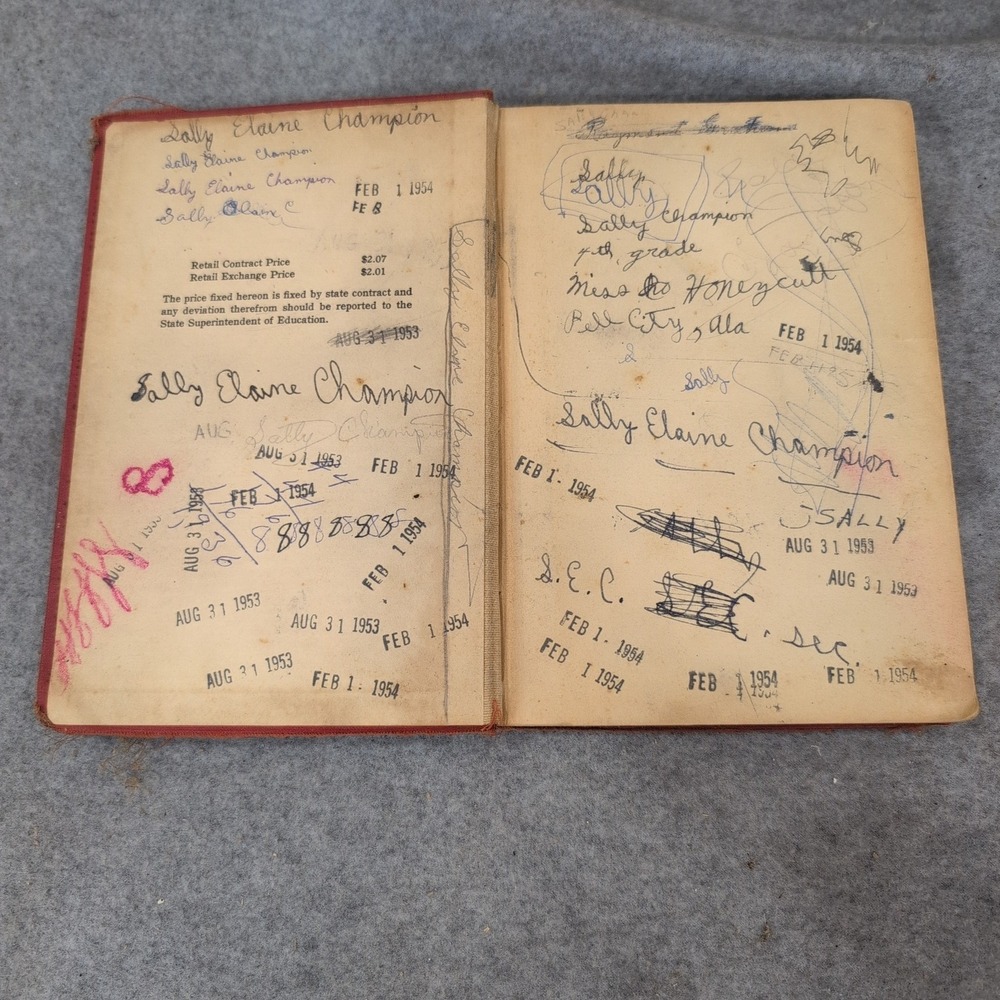 Sally Elaine Champion
Sally Elaine Champion
Sally Elaine Champion
Sally Elain C
FEB 1 1954
FEB
Retail Contract Price $2.07
Retail Exchange Price $2.01
The price fixed hereon is fixed by state contract and
any deviation therefrom should be reported to the
State Superintendent of Education.
AUG 31 1953
Sally Elaine Champion
AUG
Sally Champion
AUG 31 1953
FEB 1 1954
FEB 1 1954
8
AUG 31 1953
8 8 8 8 8 8 8 8
FEB 1 1954
AUG 31
AUG 31 1953
AUG 31 1953
FEB 1 1954
AUG 31 1953
FEB 1 1954
Sally Elaine Champion
Raymond
Sally
Sally
Sally Champion
4th grade
Miss Honeycutt
Pell City, Ala
FEB 1 1954
FEB
Sally
Sally Elaine Champion
FEB 1 1954
SALLY
AUG 31 1953
AUG 31 1953
S.E.C.
SEC.
FEB 1 1954
FEB 1 1954
FEB 1 1954
FEB 1 1954